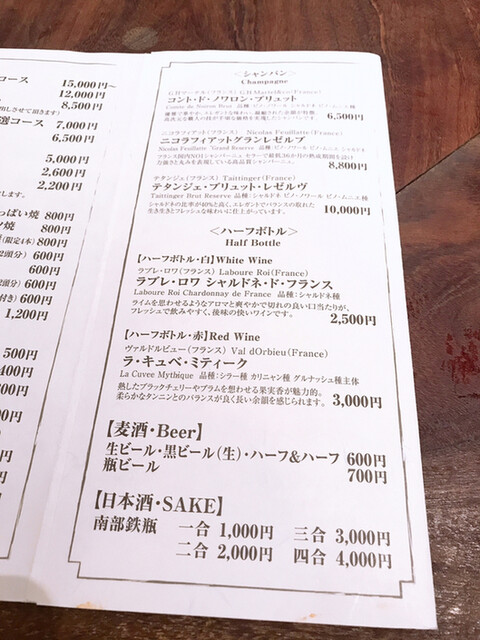 コース 15,000円~
12,000円
出しさせて頂きます) 8,500円
選コース 7,000円
6,500円
5,000円
2,600円
2,200円
します。
っぱい焼 800円
ソ焼 800円
(限定4本) 800円
2頭分) 600円
600円
2頭分) 600円
付き) 600円
1,200円
500円
400円
600円
300円
350円
350円
<シャンパン>
Champagne
(フランス) (France)
コント・ド・ノワロン・ブリュット
6,500円
ニコラフィアット(フランス) Nicolas Feuillatte(France)
ニコラフィアットグランレゼルブ
Nicolas Feuillatte Grand Reserve 品種:ピノ・ノワール ピノ・ムニエ シャルドネ
8,800円
テタンジェ(フランス) Taittinger(France)
テタンジェ・ブリュット・レゼルヴ
Taittinger Brut Reserve 品種:シャルドネ ピノ・ノワール ピノ・ムニエ種
シャルドネの比率が40%と高く、エレガントでバランスの取れた
生き生きとフレッシュな味わいに仕上がっています。 10,000円
<ハーフボトル>
Half Bottle
【ハーフボトル・白】White Wine
ラブレ・ロワ(フランス) Laboure Roi(France)
ラブレ・ロワ シャルドネ・ド・フランス
Laboure Roi Chardonnay de France 品種:シャルドネ種
ライムを思わせるようなアロマと爽やかで切れの良い口当たりが、
フレッシュで飲みやすく、後味の快いワインです。 2,500円
【ハーフボトル・赤】Red Wine
ヴァルドルビュー(フランス) Val dOrbieu(France)
ラ・キュベ・ミティーク
La Cuvee Mythique 品種:シラー種 カリニャン種 グルナッシュ種主体
熟したブラックチェリーやプラムを想わせる果実香が魅力的。
柔らかなタンニンとのバランスが良く長い余韻を感じられます。 3,000円
【麦酒・Beer】
生ビール・黒ビール(生)・ハーフ&ハーフ 600円
瓶ビール 700円
【日本酒・SAKE】
南部鉄瓶 一合 1,000円 三合 3,000円
二合 2,000円 四合 4,000円